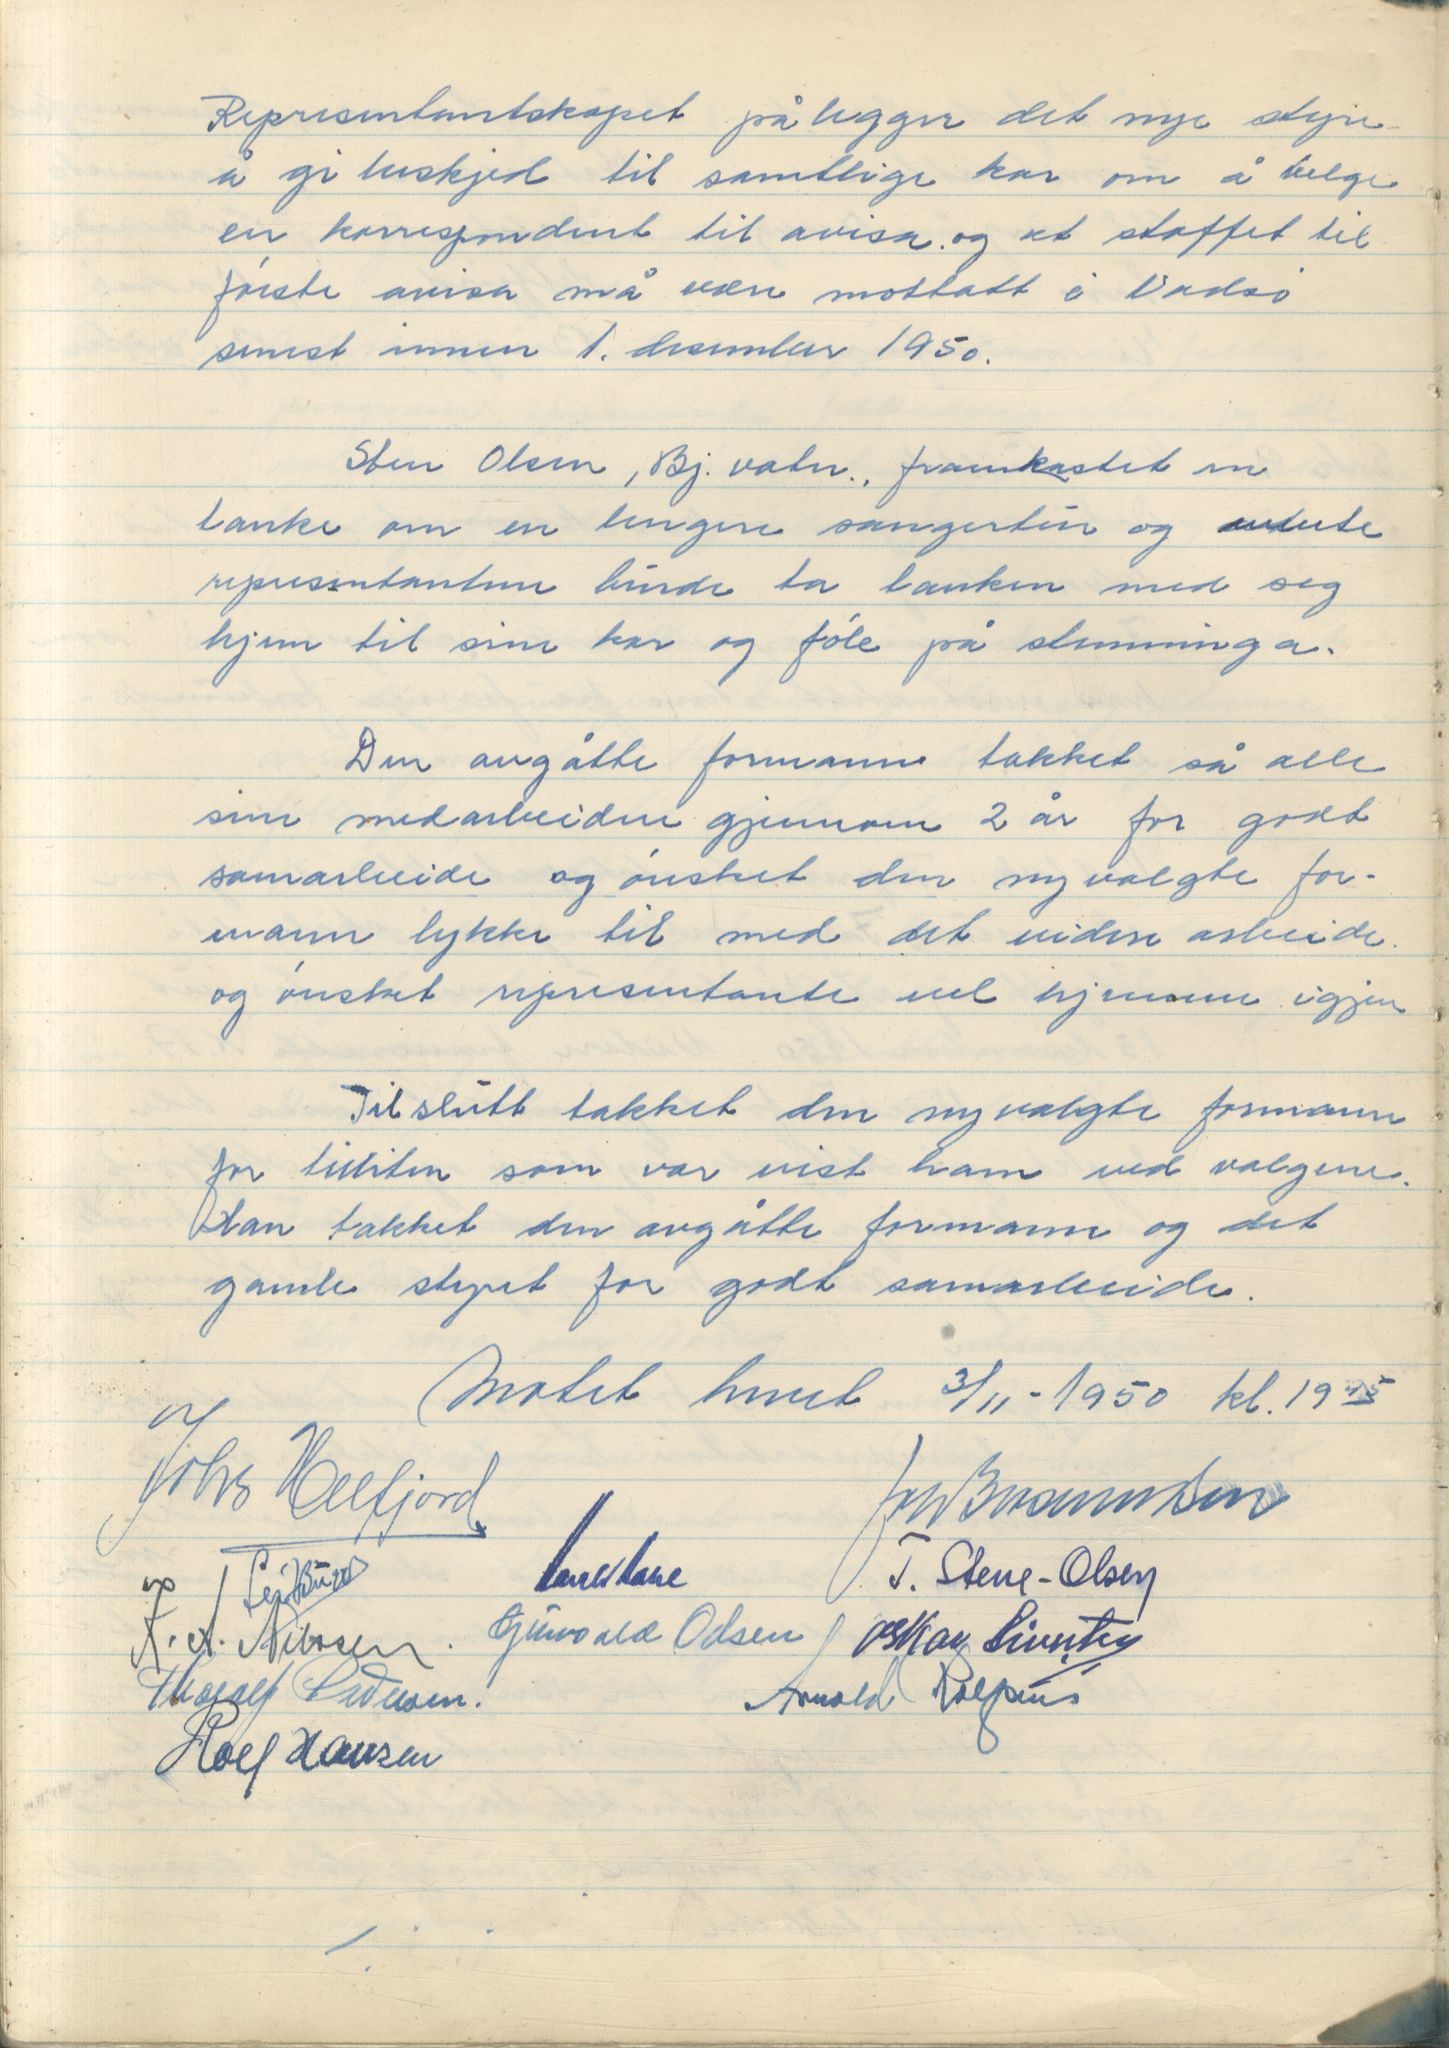 Representantskapet pålegger det nye styre
å gi beskjed til samtlige kor om å velge
en korrespondent til avisa og at stoffet til
første avisa må være mottatt i Vadsø
senest innen 1. desember 1950.
Sten Olsen, Bj. vatn., framkastet en
tanke om en lengere sangertur og
representantene burde ta tanken med seg
hjem til sine kor og føle på stemninga.
Den avgåtte formann takket så alle
sine medarbeidere gjennom 2 år for godt
samarbeide og ønsket den nyvalgte for-
mann lykke til med det videre arbeide.
og ønsket representante vel hjemme igjen
Til slutt takket den nyvalgte formann
for tilliten som var vist ham ved valgene.
Han takket den avgåtte formann og det
gamle styret for godt samarbeide.
Møtet hevet 3/11-1950 kl. 19 45
Johs Helfjord
T. Stene-Olsen
A. Nilssen. Odsen Oskar
Thoralf Pedersen. Arnold
Rolf Hansen